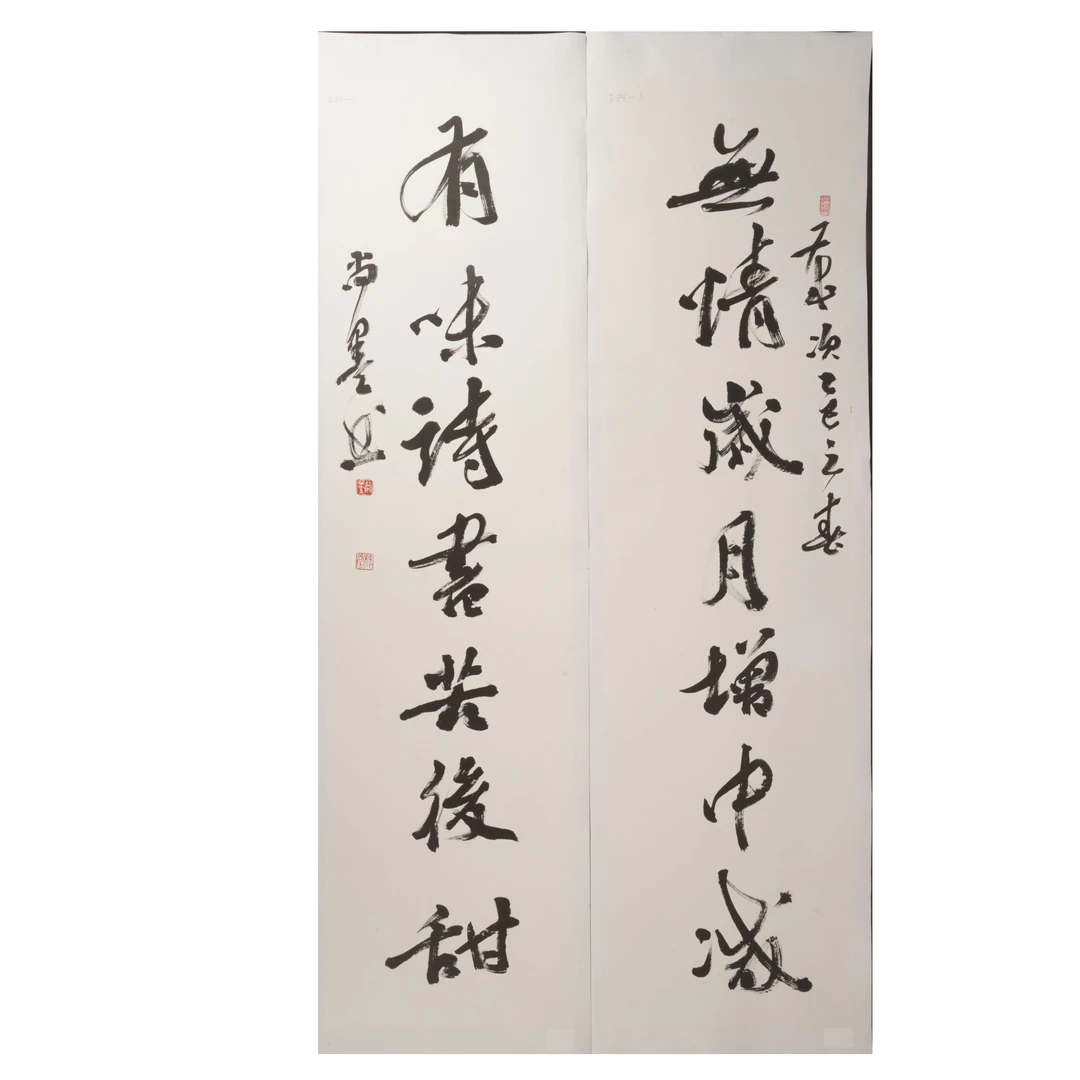 無情歲月增中減
歲次乙巳立春
有味詩書苦後甜
尚墨書